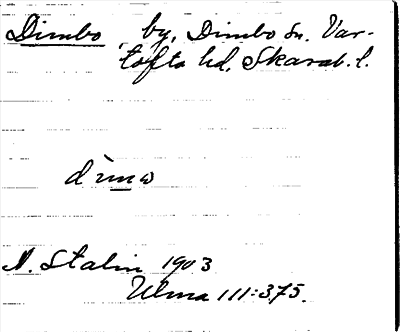 Dimbo, by, Dimbo sn. Var-
tofta hd, Skarab. l.
dìmω
N. Stalin 1903
Ulma 111:375.